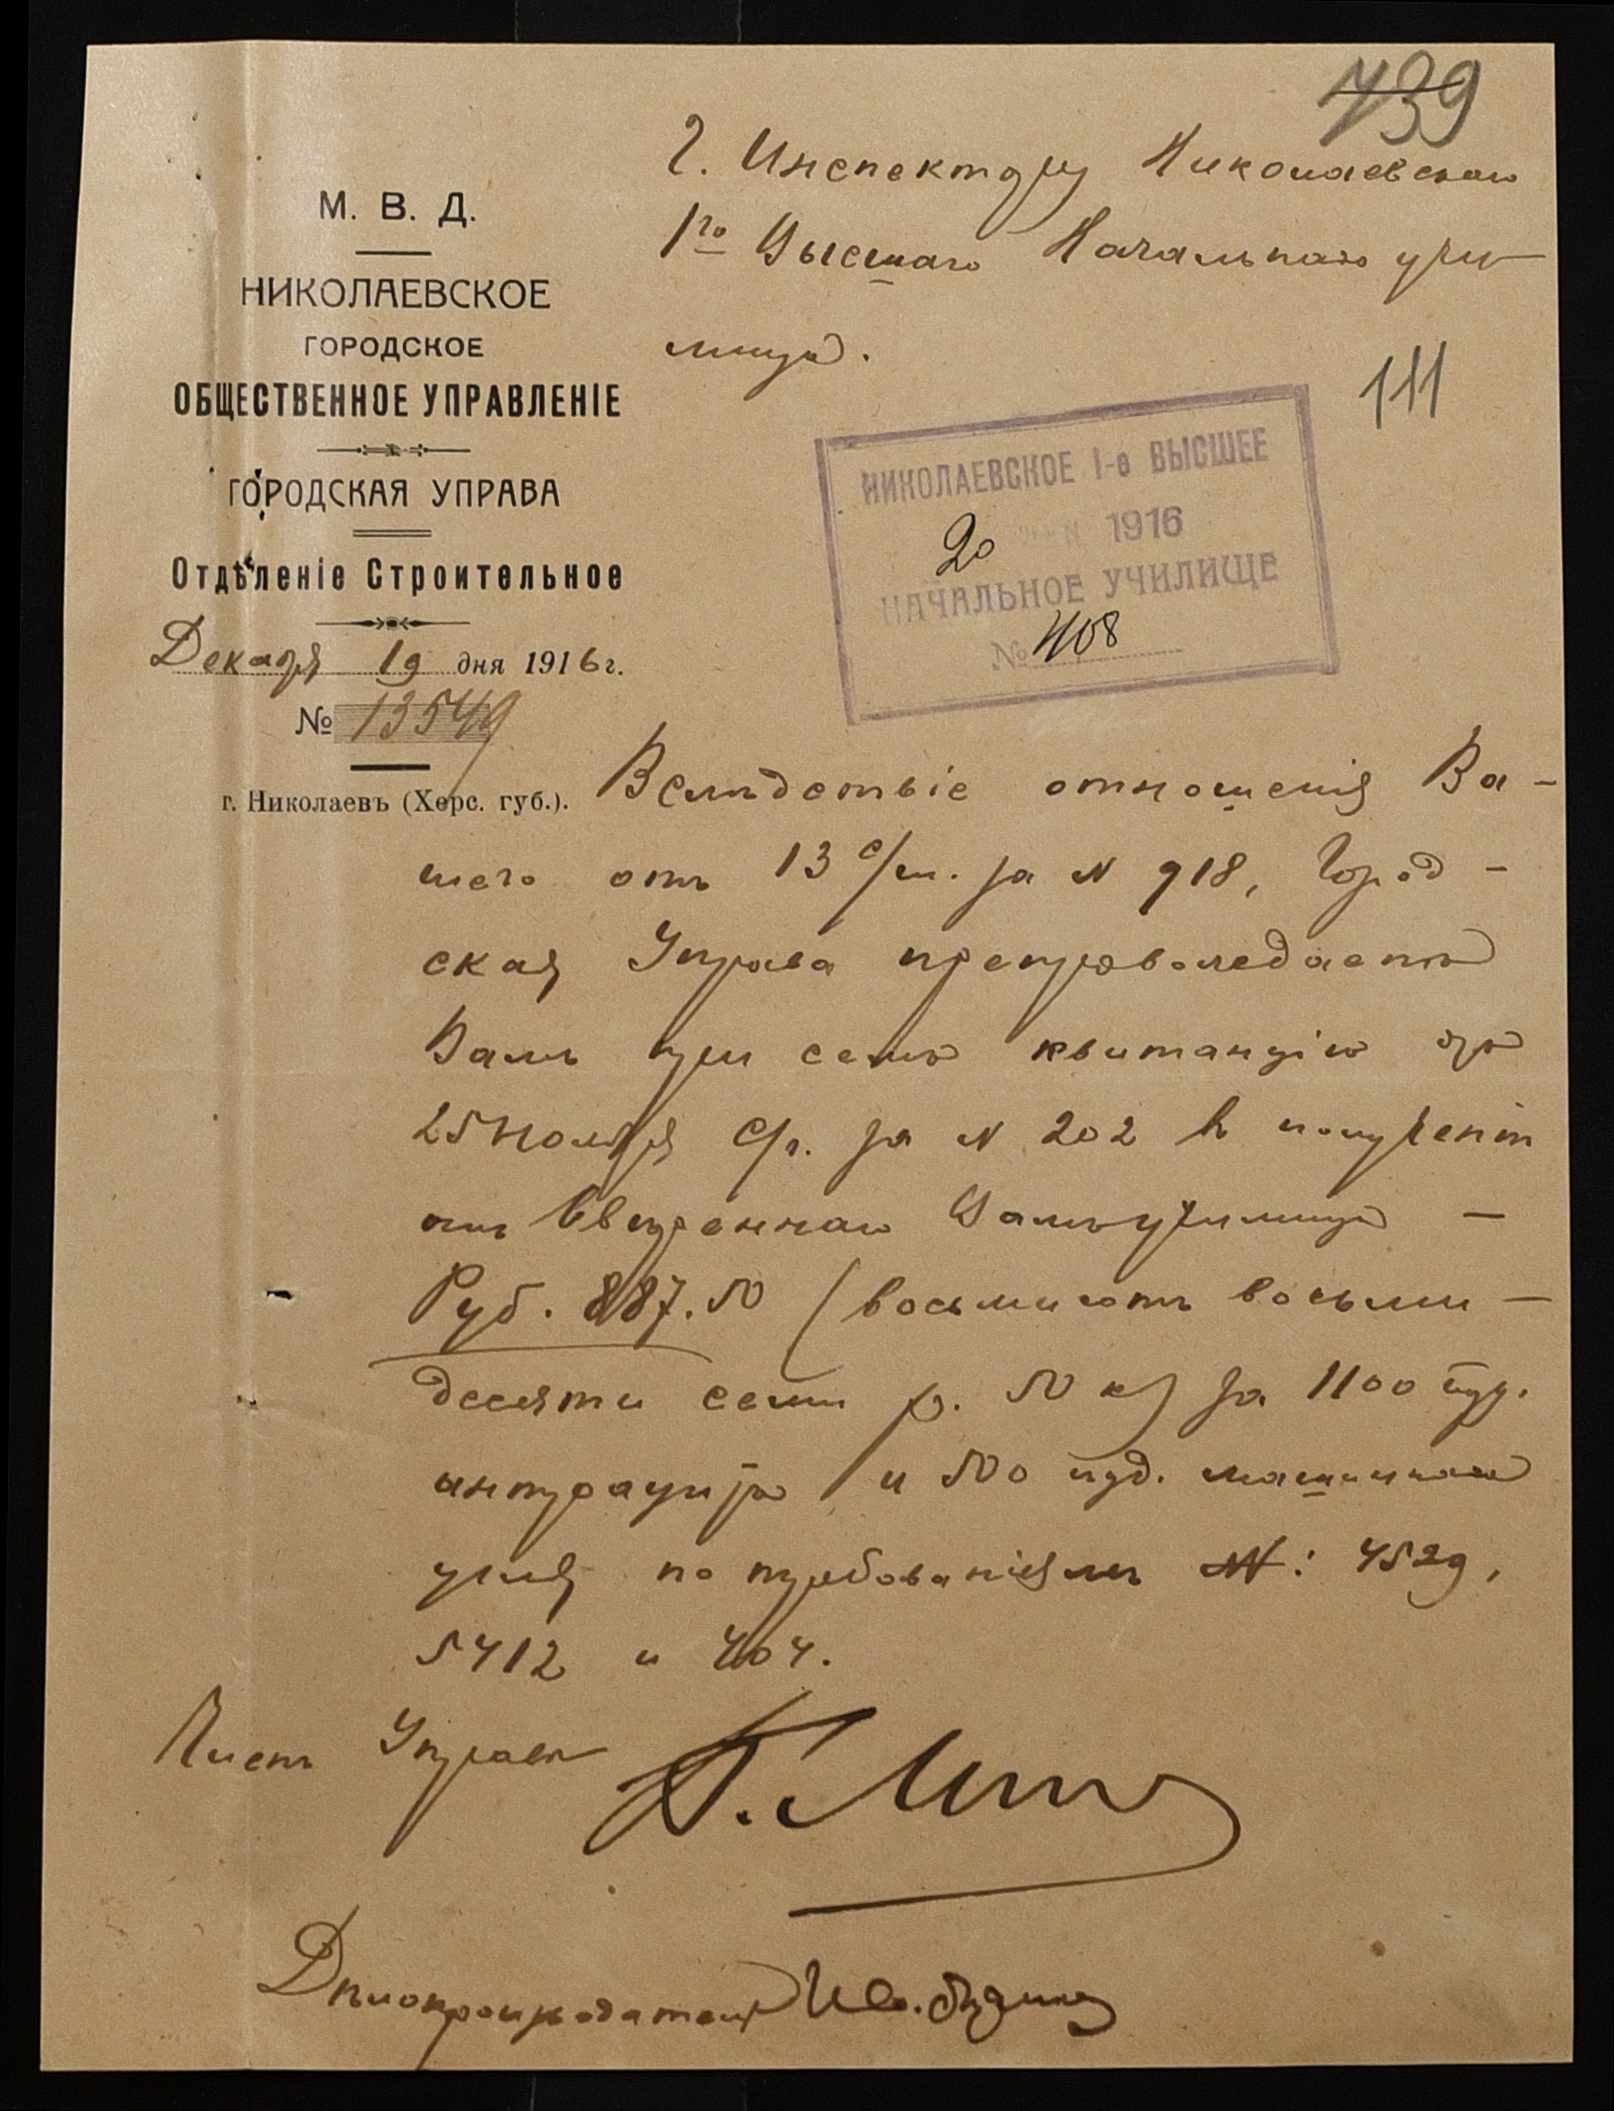 739
Г. Инспектору Николаевскаго
1го Высшаго Начальнаго учи
лища.
111
М. В. Д.
НИКОЛАЕВСКОЕ
ГОРОДСКОЕ
ОБЩЕСТВЕННОЕ УПРАВЛЕНІЕ
ГОРОДСКАЯ УПРАВА
Отдѣленіе Строительное
Декабря 19 дня 1916 г.
№ 13549
г. Николаевъ (Херс. губ.).
НИКОЛАЕВСКОЕ 1-е ВЫСШЕЕ
20 1916
НАЧАЛЬНОЕ УЧИЛИЩЕ
№ 408
Вслѣдствіе отношенія Ва-
шего отъ 13 с/м. за № 918, Город-
ская Управа препровождаетъ
Вамъ при семъ квитанцію отъ
25 Ноября с/г. за № 202 въ полученіи
отъ ввѣреннаго Вамъ училища —
Руб. 887.50 (восьмисотъ восьми-
десяти семи р. 50 к) за 1100 пуд.
антрацита и 500 пуд. машиннаго
угля по требованіямъ №№: 4529,
5412 и 404.
Членъ Управы
Дѣлопроизводитель